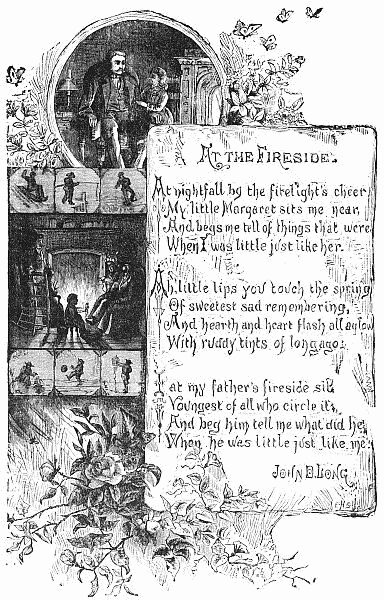 AT THE FIRESIDE.
At nightfall by the firelight's cheer
My little Margaret sits me near,
And begs me tell of things that were
When I was little just like her.
Ah little lips you touch the spring
Of sweetest sad remembering,
And hearth and heart flash all aglow
With ruddy tints of long ago.
I at my father's fireside sit
Youngest of all who circle it,
And beg him tell me what did he
When he was little just like me.
JOHN D. LONG.